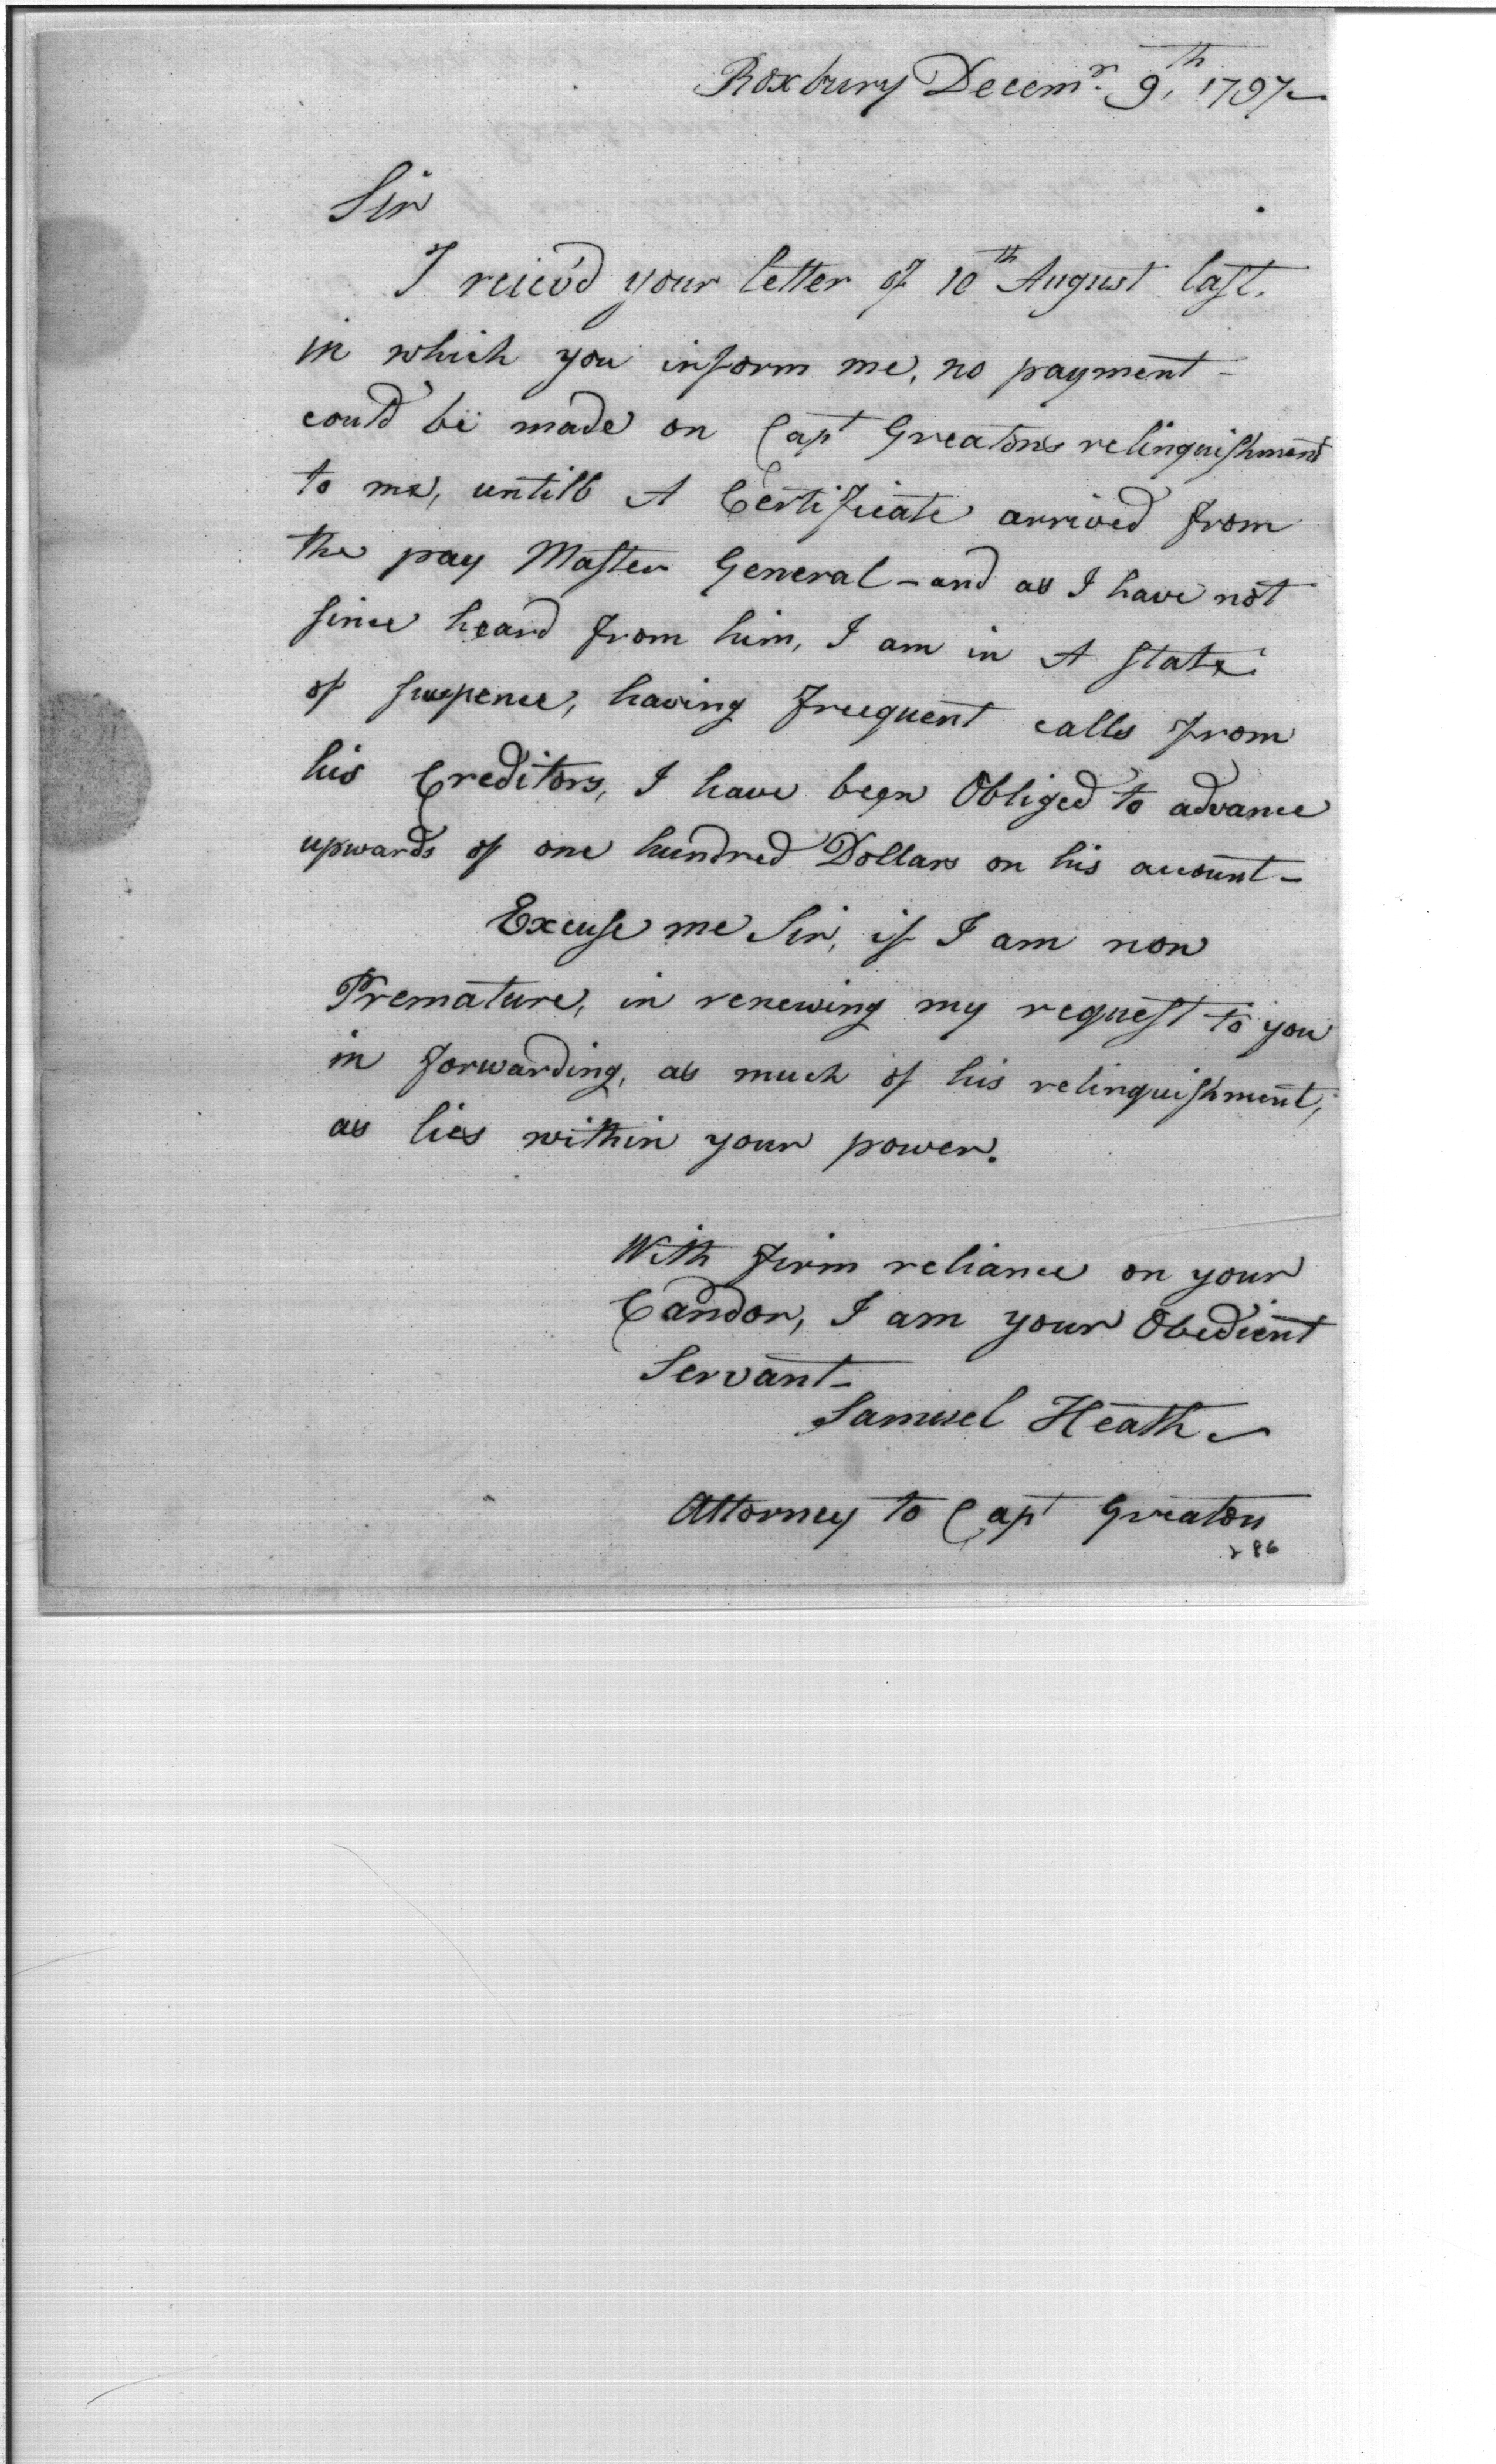 Roxbury Decemr. 9th, 1797
Sir
I reicvd your letter of 10th August last.
in which you inform me, no payment -
could be made on Capt Greatons relinquishment
to me, untill A Certificate arrived from
the pay Master General - and as I have not
since heard from him, I am in A state
of suspence, having freequent calls from
his Creditors, I have been Obliged to advance
upwards of one hundred Dollars on his acount -
Excuse me Sir, if I am now
Premature, in renewing my request to you
in forwarding, as much of his relinquishment,
as lies within your power.
With firm reliance on your
Candor, I am your Obedient
Servant -
Samuel Heath
Attorney to Capt Greaton
286